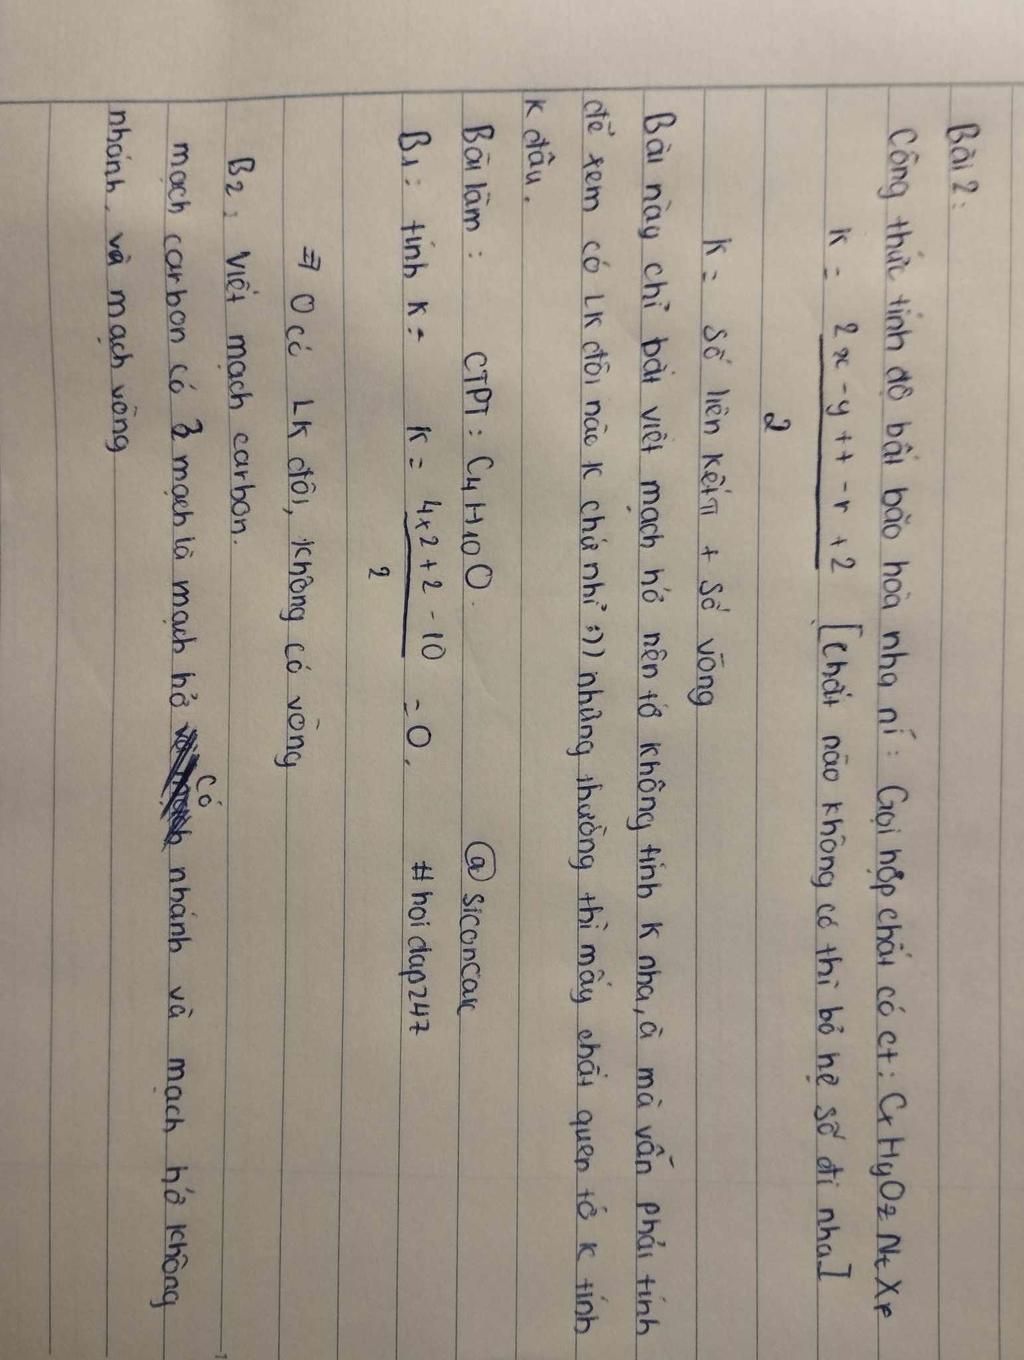 Bài 2:
Công thức tính độ bất bão hoà nha ní: Gọi hợp chất có ct: CxHyOzNtXr
K = 2x - y + t - r + 2 [chất nào không có thì bỏ hệ số đi nha]
2
K = Số liên kết π + Số vòng
Bài này chỉ bắt viết mạch hở nên tớ không tính K nha, à mà vẫn phải tính
để xem có LK đôi nào K chứ nhỉ :)) nhưng thường thì mấy chất quen tớ K tính
K đâu.
Bài làm: CTPT: C4H10O. @siconcac
B1: tính K: K = 4x2+2-10 = 0. #hoidap247
2
⇒ 0 có LK đôi, không có vòng
B2: Viết mạch carbon.
mạch carbon có 3 mạch là mạch hở có nhánh và mạch hở không
nhánh, và mạch vòng